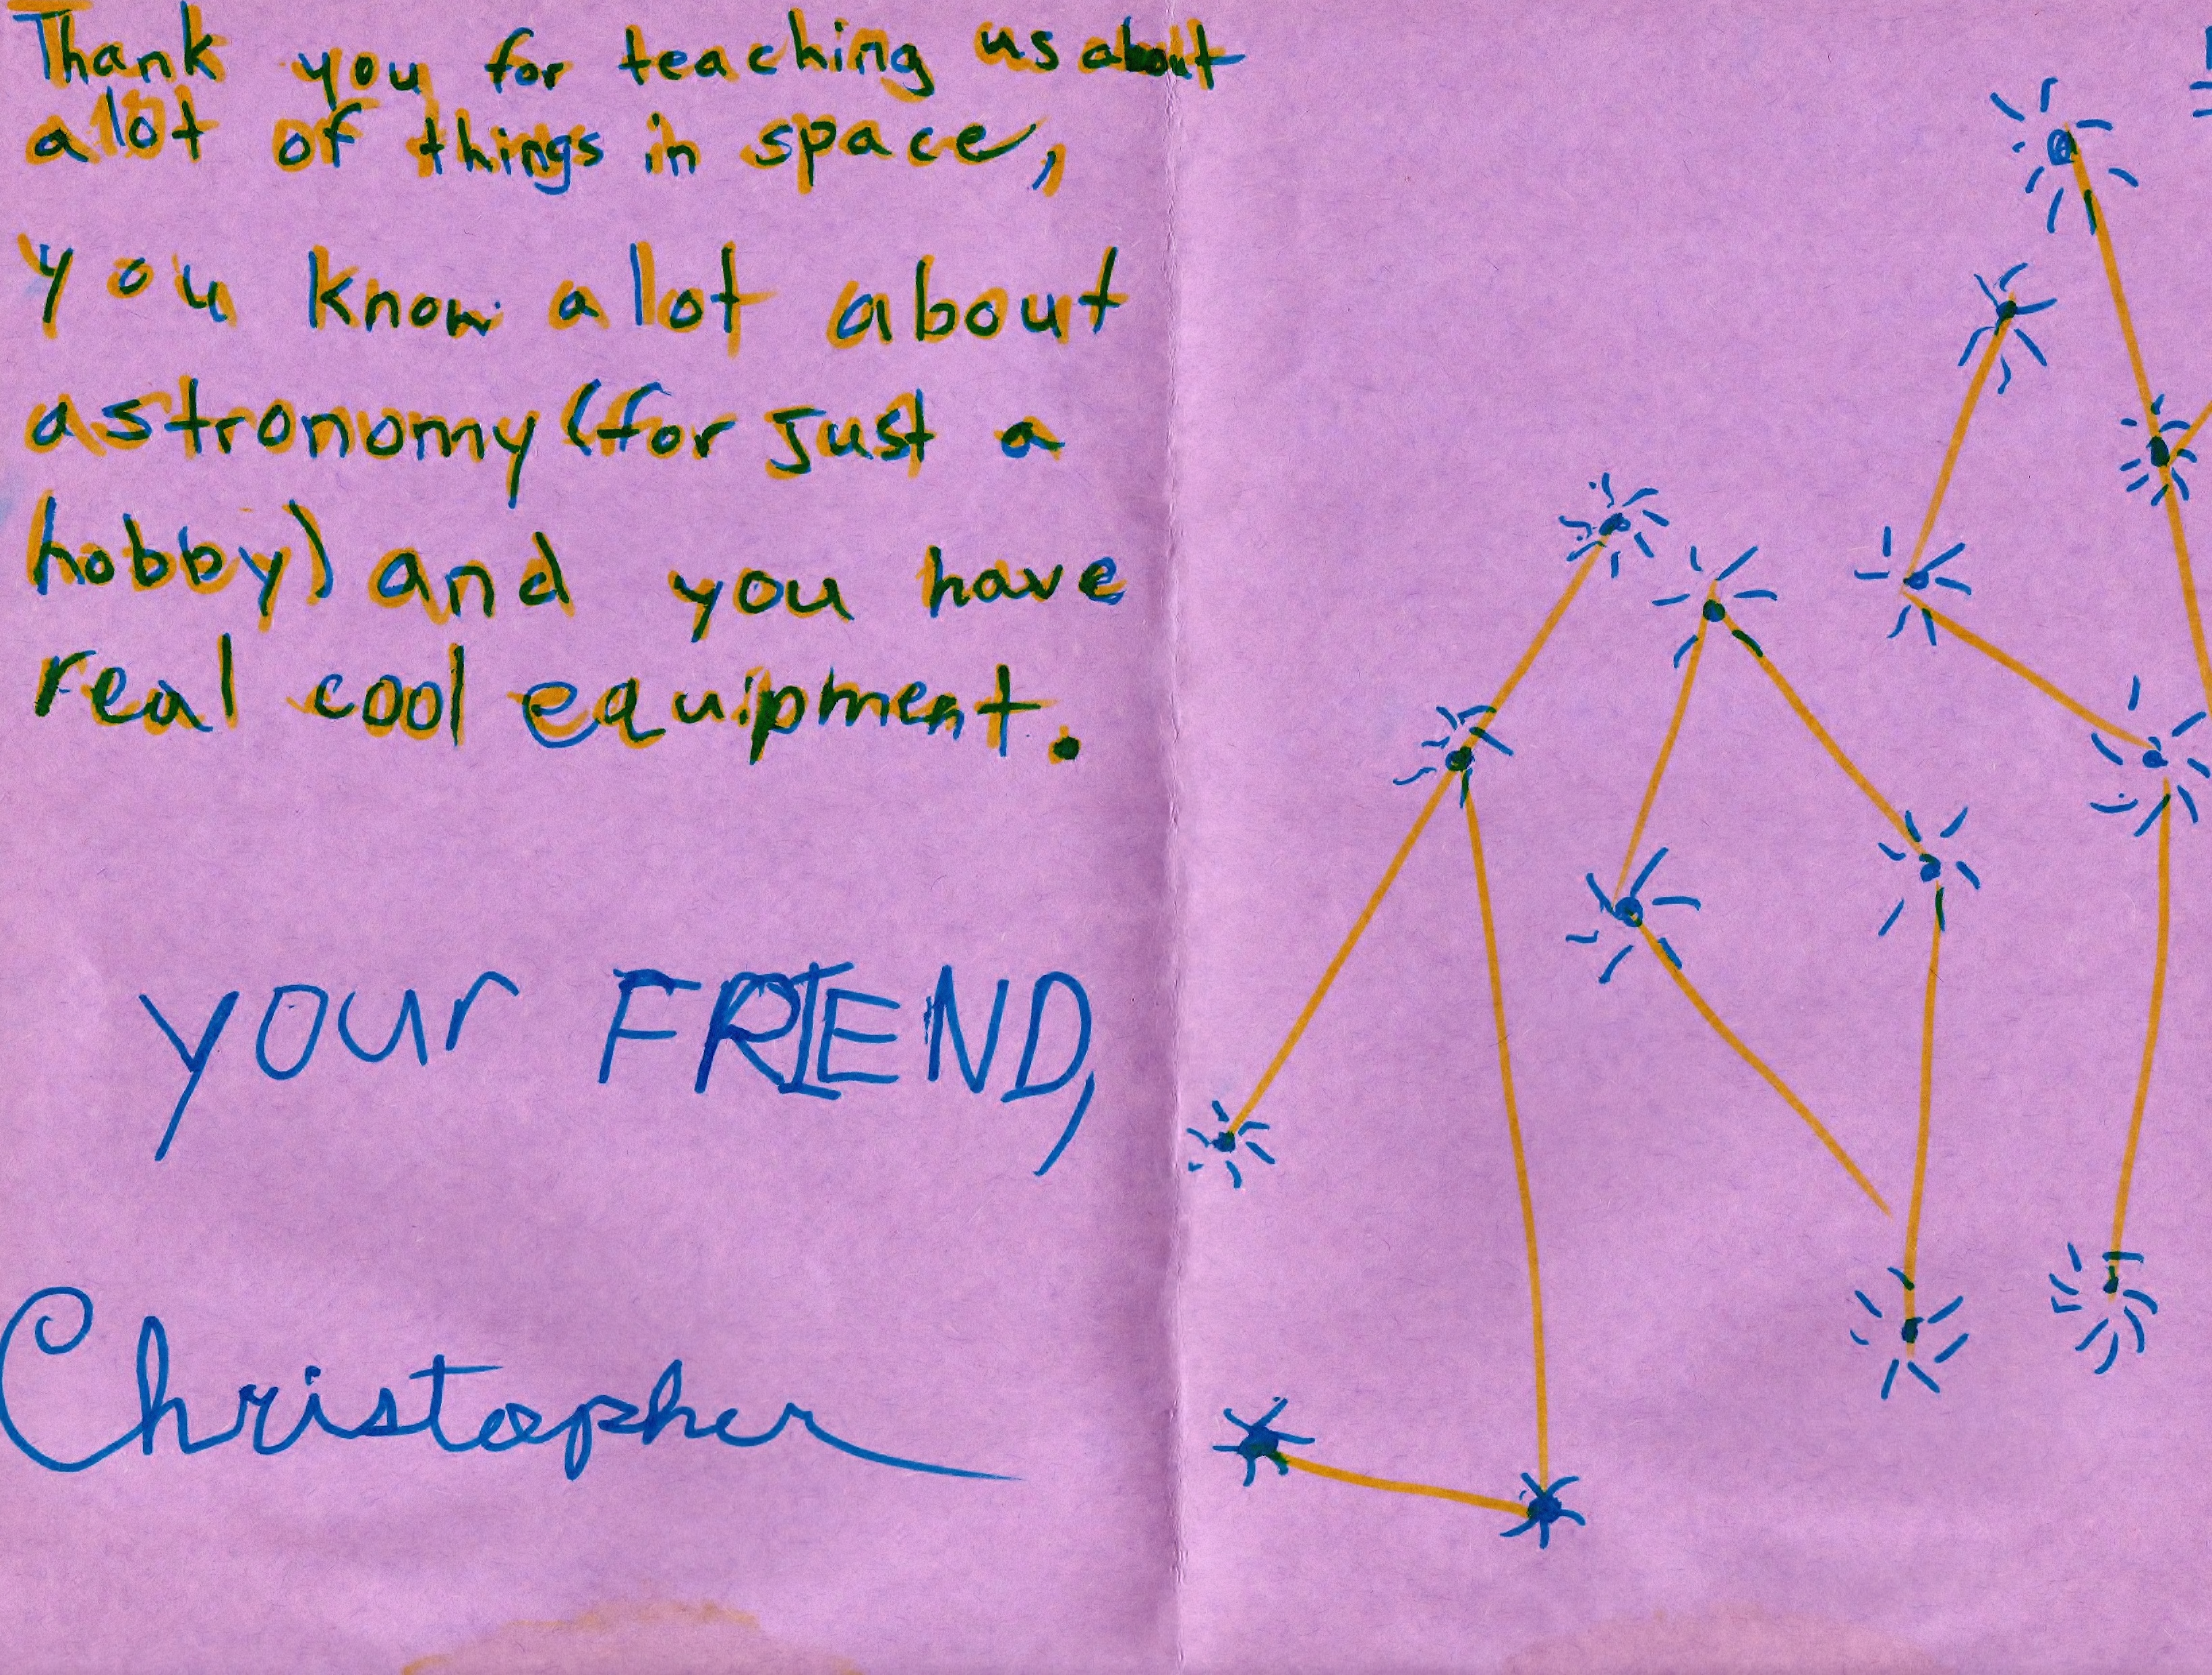 Thank you for teaching us about
alot of things in space,
you know alot about
astronomy (for just a
hobby) and you have
real cool equipment.
your FRIEND,
Christopher